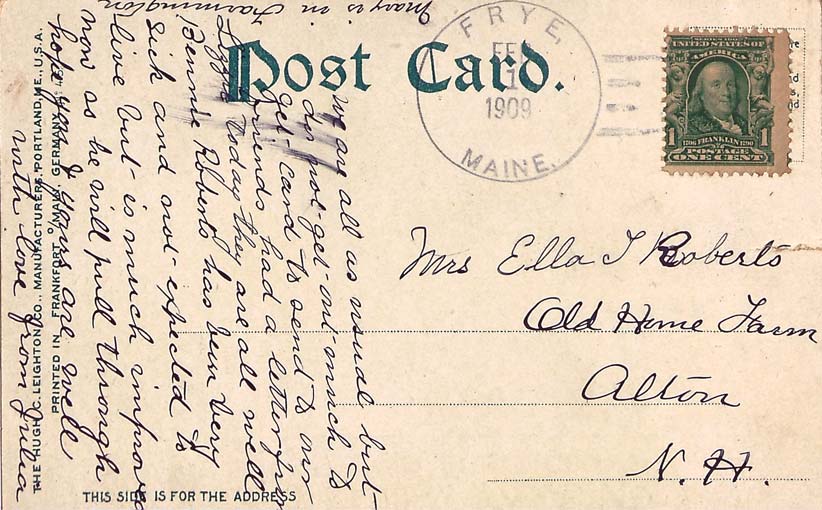 Mary is in Farmington
Post Card.
FRYE,
FEB
1
1909
MAINE.
UNITED STATES OF
AMERICA
1 1706 FRANKLIN 1790 1
POSTAGE
ONE CENT
we are all as usual but
do not get out much to
get card to send to our
friends had a letter from
Lizzie today they are all well
Bennie Roberts has been very
sick and not expected to
live but is much improved
now as he will pull through
hope you & yours are well
with love from Julia
Mrs Ella J Roberts
Old Home Farm
Alton
N. H.
THE HUGH C. LEIGHTON CO., MANUFACTURERS, PORTLAND, ME., U.S.A.
PRINTED IN FRANKFORT O/MAIN, GERMANY
THIS SIDE IS FOR THE ADDRESS